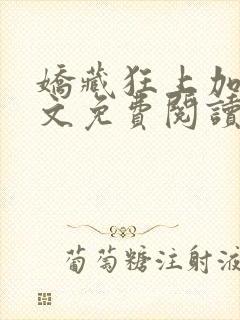 嬌藏狂上加
文免費閱讀
葡萄糖注射液